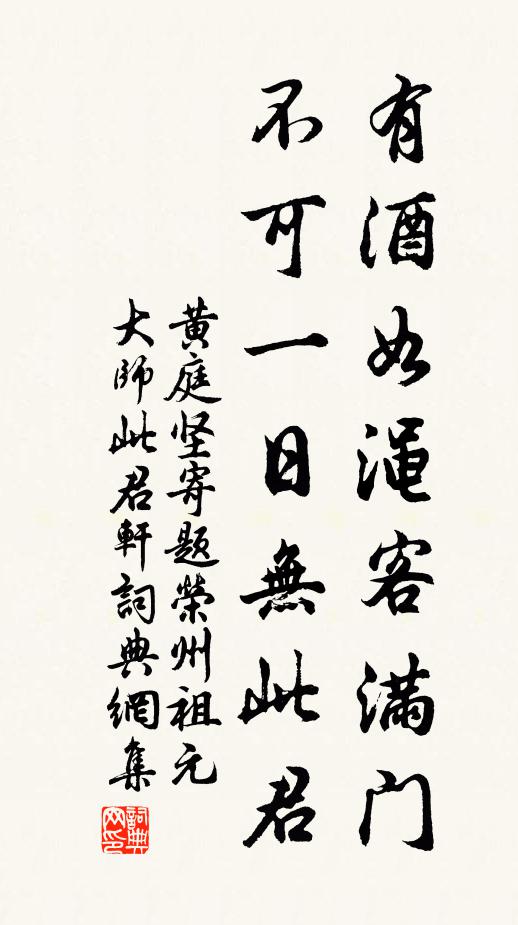 有酒如渑客满门
不可一日無此君
黄庭坚寄题榮州祖元
大师此君軒詞典網集
詞典网印